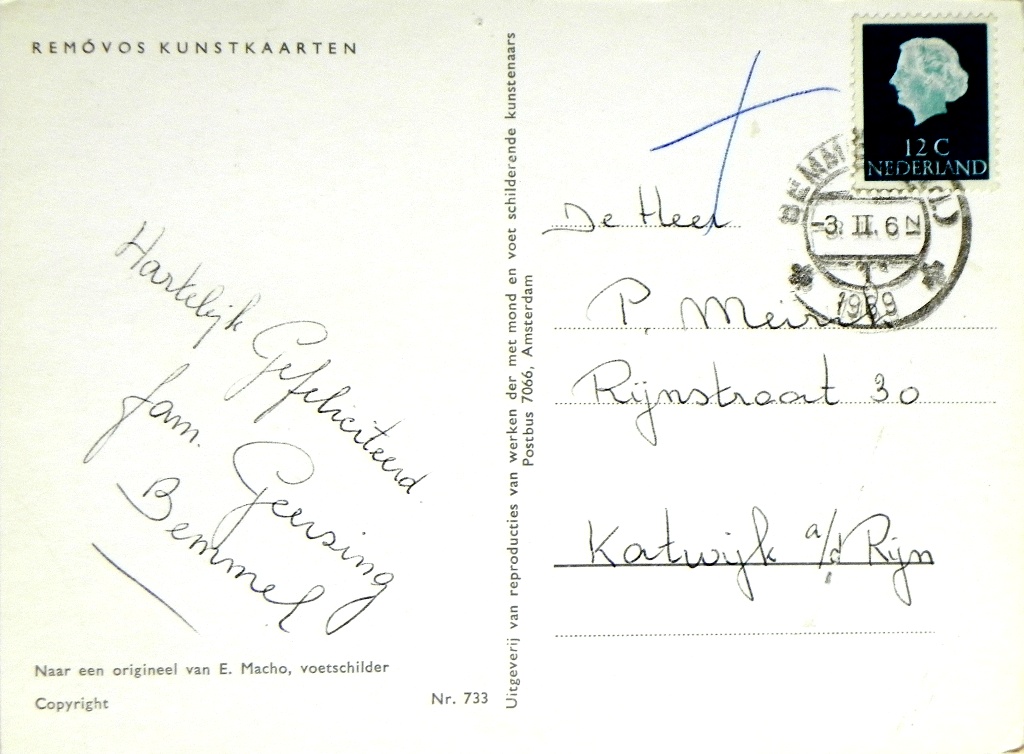 REMÓVOS KUNSTKAARTEN
Hartelijk Gefeliciteerd
fam. Geersing
Bemmel
Naar een origineel van E. Macho, voetschilder
Copyright
Nr. 733
Uitgeverij van reproducties van werken der met mond en voet schilderende kunstenaars
Postbus 7066, Amsterdam
12 C
NEDERLAND
-3. II. 6
1969
De Heer
P.
Rijnstraat 30
Katwijk a/d Rijn